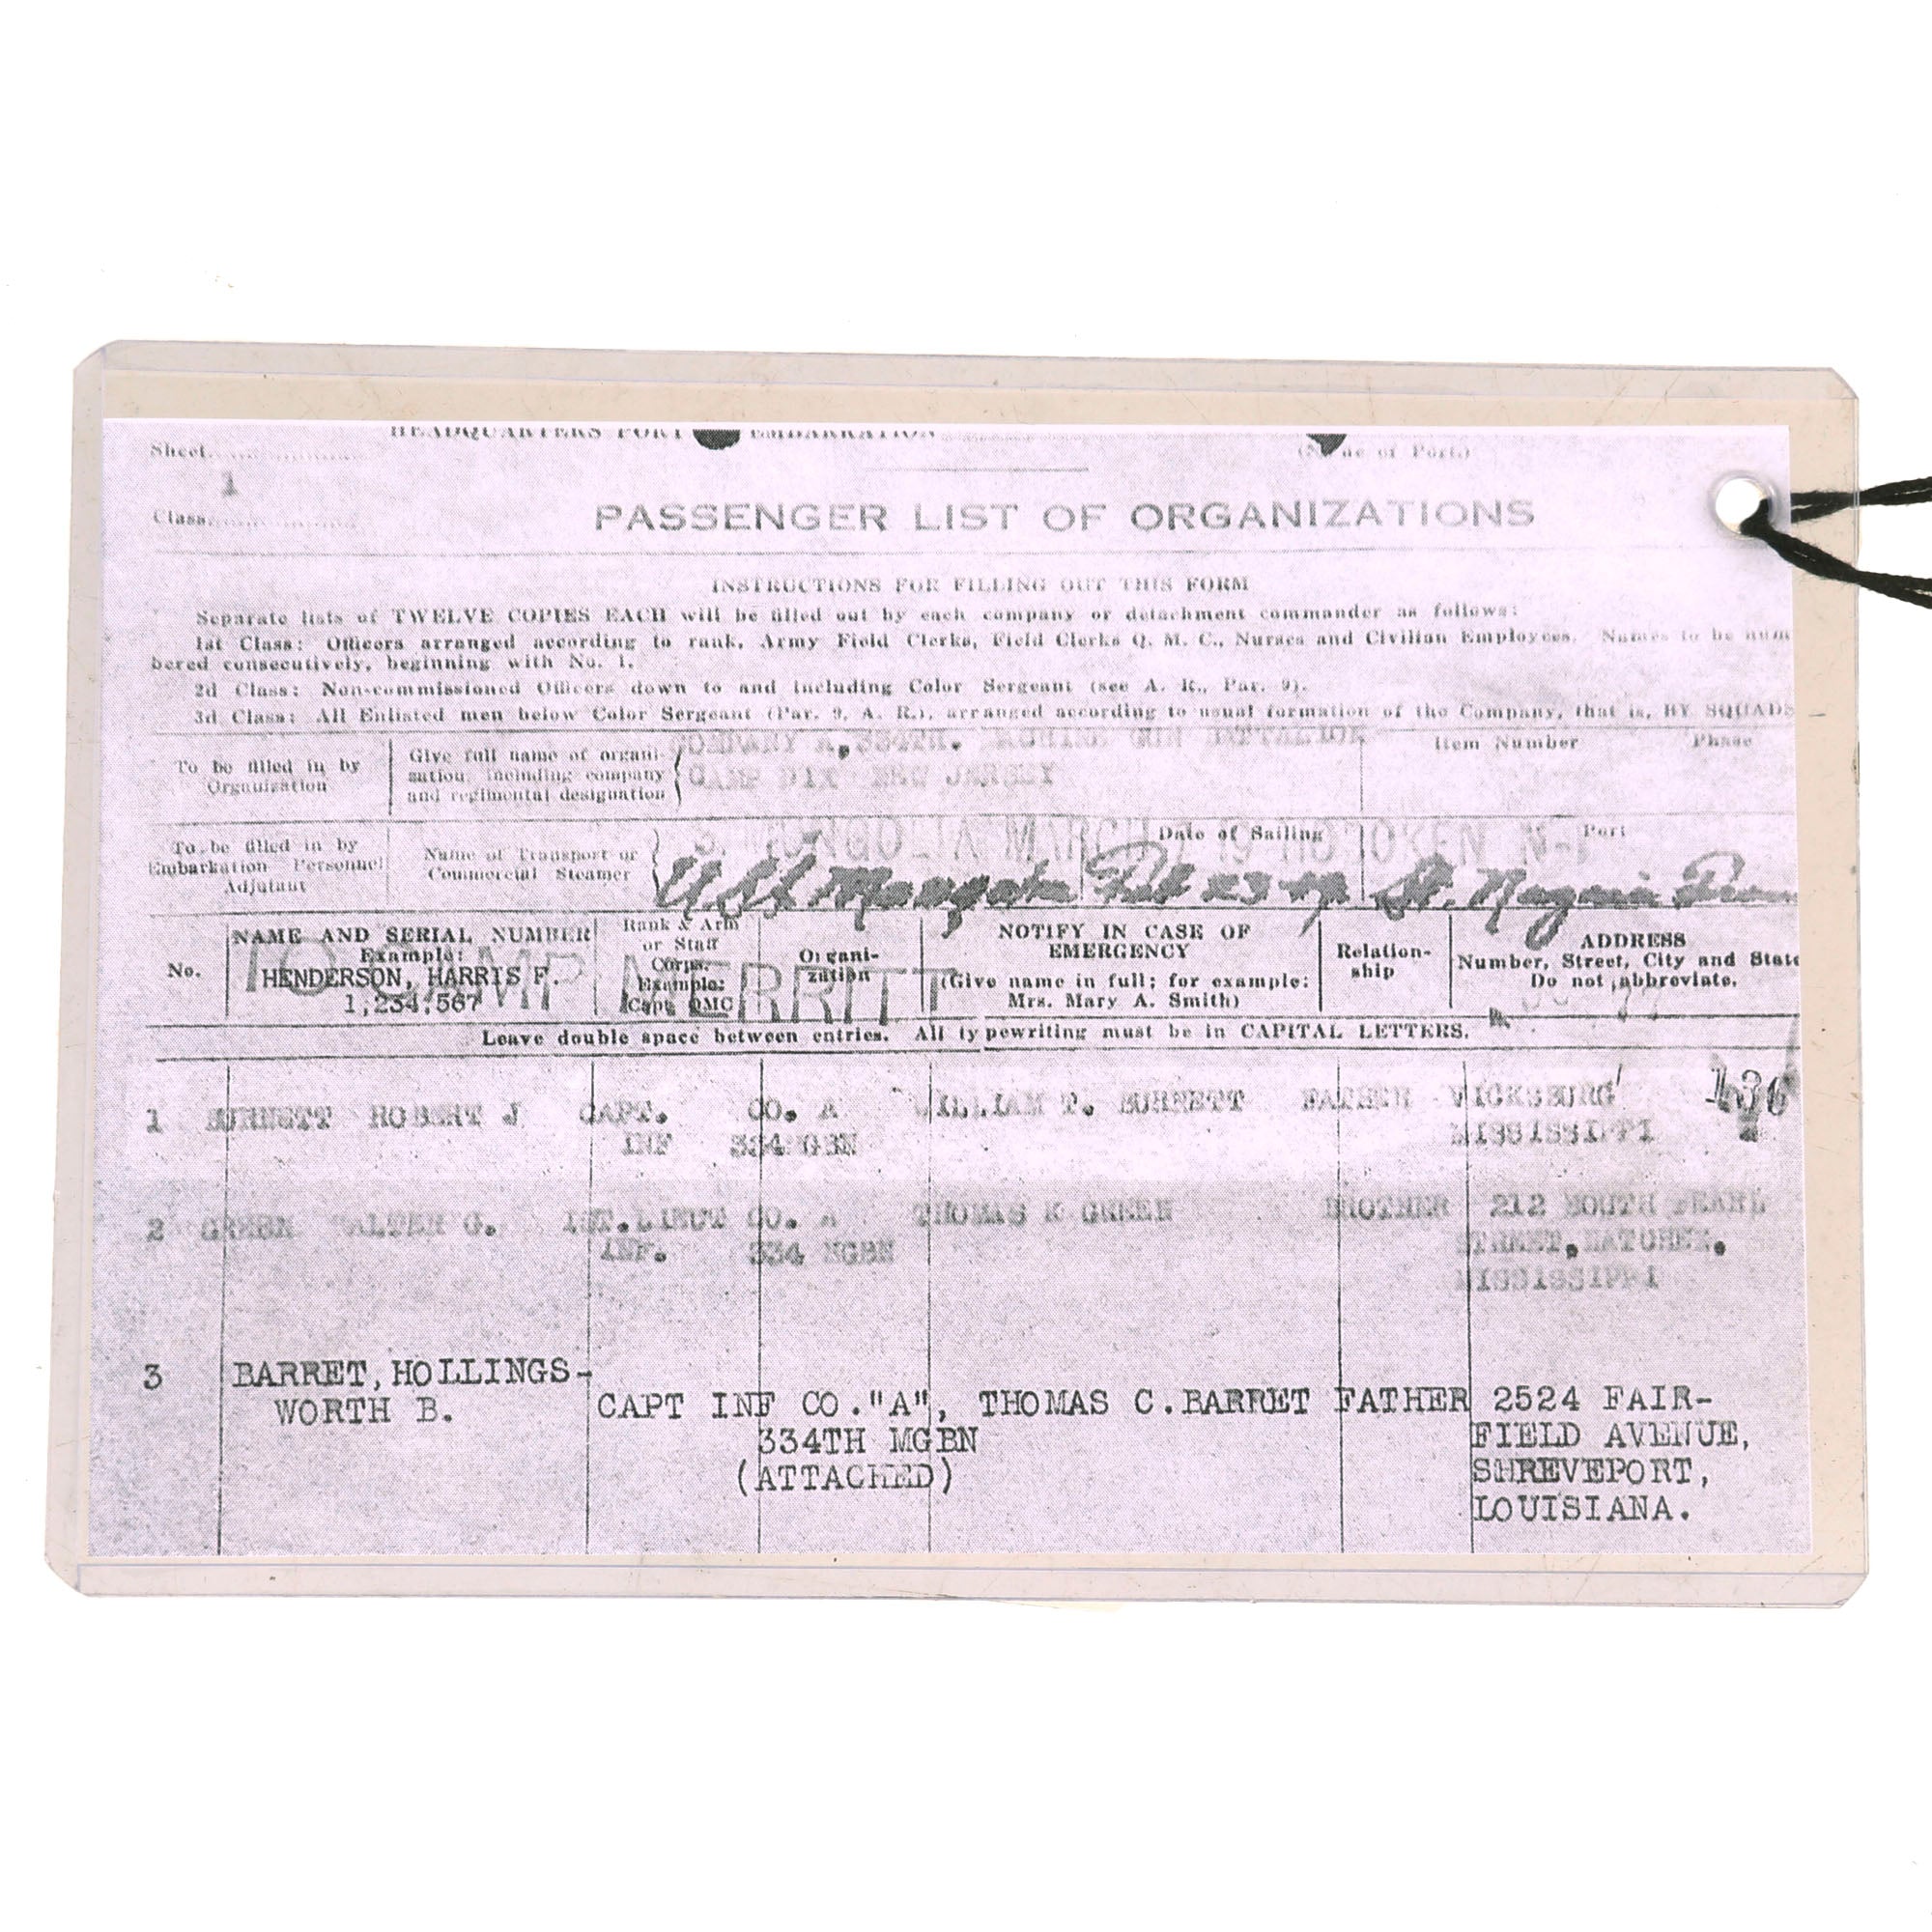 HEADQUARTERS PORT EMBARKATION
Sheet
(Name of Port.)
1
Class
PASSENGER LIST OF ORGANIZATIONS
INSTRUCTIONS FOR FILLING OUT THIS FORM
Separate lists of TWELVE COPIES EACH will be filled out by each company or detachment commander as follows:
1st Class: Officers arranged according to rank, Army Field Clerks, Field Clerks Q. M. C., Nurses and Civilian Employees. Names to be num
bered consecutively, beginning with No. 1.
2d Class: Non-commissioned Officers down to and including Color Sergeant (see A. R., Par. 9).
3d Class: All Enlisted men below Color Sergeant (Par. 9, A. R.), arranged according to usual formation of the Company, that is, BY SQUADS
To be filled in by Organization
Give full name of organi-
zation, including company
and regimental designation
COMPANY A, 334TH. MACHINE GUN BATTALION
CAMP DIX NEW JERSEY
Item Number
Phase
To be filled in by
Embarkation Personnel
Adjutant
Name of Transport or
Commercial Steamer
MONGOLIA MARCH 19 HOBOKEN N-J
Date of Sailing
Port
USS Mongolia Feb 23 St. Nazaire
No.
NAME AND SERIAL NUMBER
Example:
HENDERSON, HARRIS F.
1,234,567
Rank & Arm
or Staff
Corps.
Example:
Capt. QMC
Organi-
zation
NOTIFY IN CASE OF
EMERGENCY
(Give name in full; for example:
Mrs. Mary A. Smith)
Relation-
ship
ADDRESS
Number, Street, City and State
Do not abbreviate.
TO CAMP MERRITT
Leave double space between entries. All typewriting must be in CAPITAL LETTERS.
1 BURNETT ROBERT J CAPT. CO. A WILLIAM T. BURNETT FATHER VICKSBURG
INF 334 MGBN MISSISSIPPI
2 GREEN WALTER G. 1ST.LIEUT CO. A THOMAS R GREEN BROTHER 212 SOUTH PEARL
INF. 334 MGBN STREET, NATCHEZ,
MISSISSIPPI
3 BARRET, HOLLINGS-
WORTH B. CAPT INF CO. "A", THOMAS C. BARRET FATHER 2524 FAIR-
334TH MGBN FIELD AVENUE,
(ATTACHED) SHREVEPORT,
LOUISIANA.